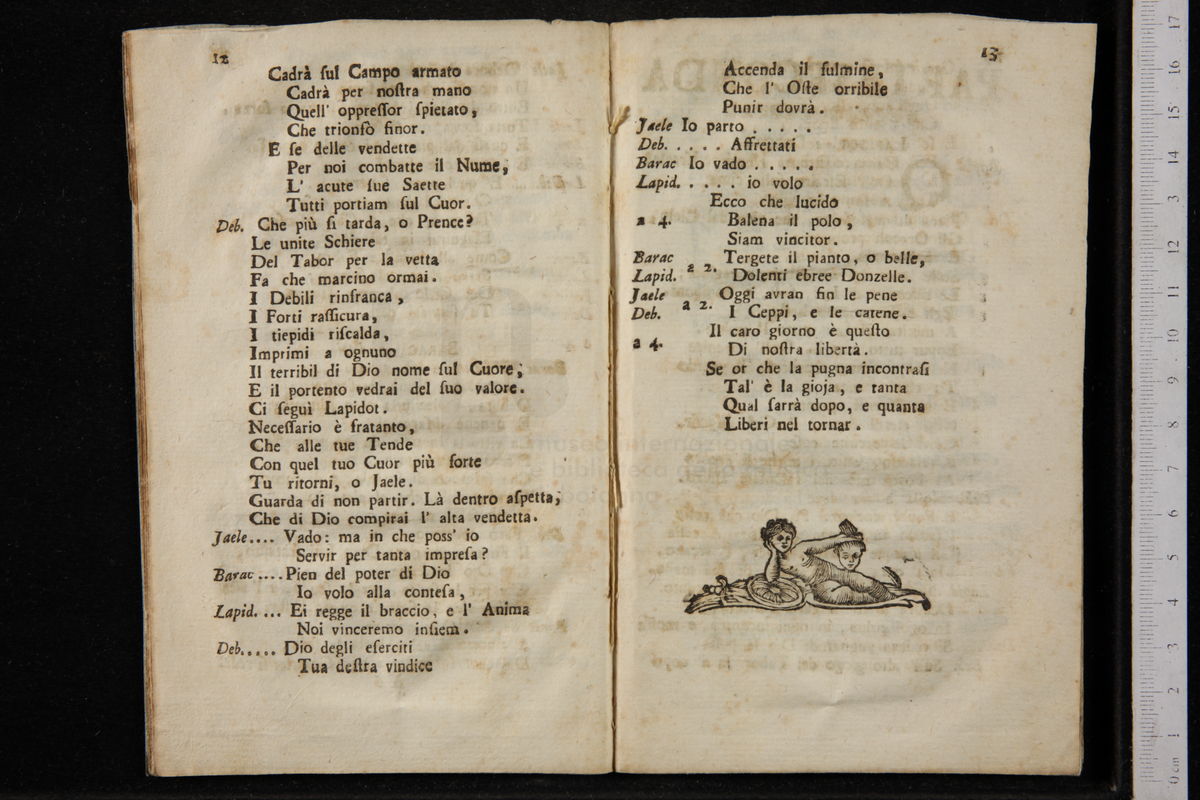 12
Cadrà ſul Campo armato
Cadrà per noſtra mano
Quell' oppreſſor ſpietato,
Che trionfò finor.
E ſe delle vendette
Per noi combatte il Nume,
L' acute ſue Saette
Tutti portiam ſul Cuor.
Deb. Che più ſi tarda, o Prence?
Le unite Schiere
Del Tabor per la vetta
Fa che marcino ormai.
I Debili rinfranca,
I Forti raſſicura,
I tiepidi riſcalda,
Imprimi a ognuno
Il terribil di Dio nome ſul Cuore;
E il portento vedrai del ſuo valore.
Ci ſeguì Lapidot.
Neceſſario è fratanto,
Che alle tue Tende
Con quel tuo Cuor più forte
Tu ritorni, o Jaele.
Guarda di non partir. Là dentro aſpetta,
Che di Dio compirai l' alta vendetta.
Jaele.... Vado: ma in che poss' io
Servir per tanta impreſa?
Barac .... Pien del poter di Dio
Io volo alla conteſa,
Lapid. ... Ei regge il braccio, e l' Anima
Noi vinceremo inſiem.
Deb..... Dio degli eſerciti
Tua deſtra vindice
13
Accenda il fulmine,
Che l' Oſte orribile
Punir dovrà.
Jaele Io parto . . . . .
Deb. . . . . . Affrettati
Barac Io vado . . . . .
Lapid. . . . . . io volo
Ecco che lucido
a 4. Balena il polo,
Siam vincitor.
Barac Tergete il pianto, o belle,
Lapid. a 2. Dolenti ebree Donzelle.
Jaele Oggi avran fin le pene
Deb. a 2. I Ceppi, e le catene.
Il caro giorno è queſto
a 4. Di noſtra libertà.
Se or che la pugna incontraſi
Tal' è la gioja, e tanta
Qual ſarrà dopo, e quanta
Liberi nel tornar.
museo internazionale
e biblioteca della musica
bologna
17
16
15
14
13
12
11
10
9
8
7
6
5
4
3
2
1
0 cm